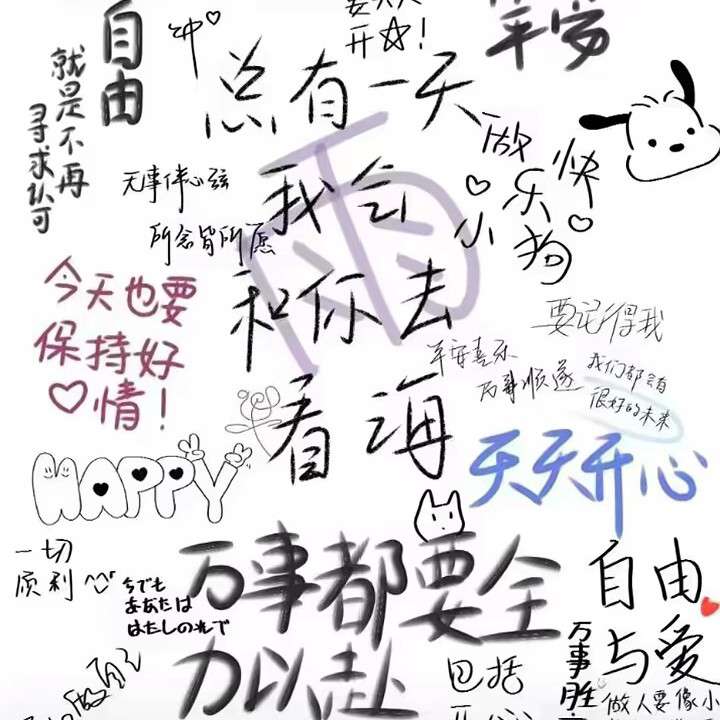 自由
就是不再
寻求认可
开☆!
平安
总有一天
我会
和你去
看海
雨
做
快
乐
小
狗
无事伴心弦
所念皆所愿
今天也要
保持好
♡情!
要记得我
平安喜乐
万事顺遂
我们都会有
很好的未来
HAPPY
天天开心
一切
顺利
今でも
あなたは
わたしの光で
万事都要全
力以赴
包括
开心
自由
与爱
万事胜
做人要像小